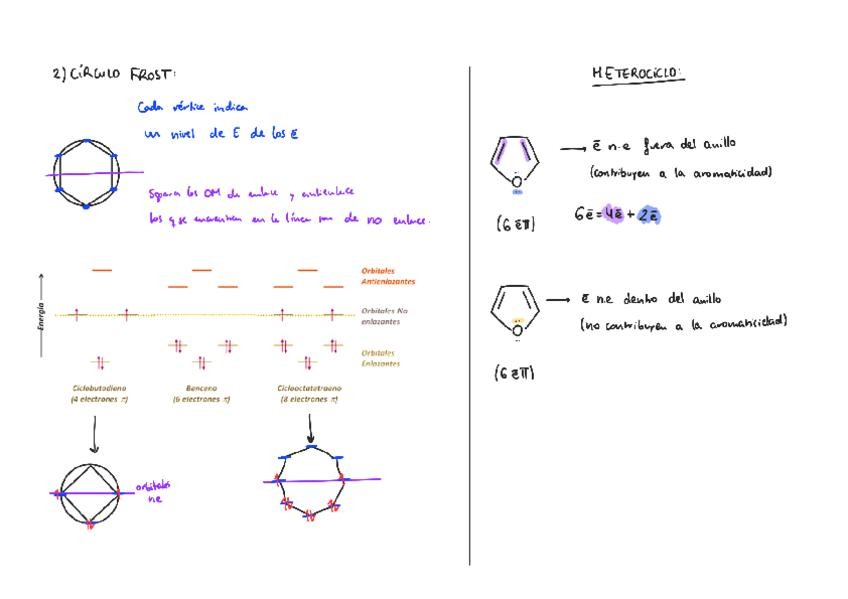 2) CÍRCULO FROST:
Cada vértice indica
un nivel de E de los ē
Separa los OM de enlace y antienlace
los que encuentran en la línea son de no enlace.
Orbitales
Antienlazantes
Energía
Orbitales No
enlazantes
Orbitales
Enlazantes
Ciclobutadieno
(4 electrones π)
Benceno
(6 electrones π)
Ciclooctatetraeno
(8 electrones π)
orbitales
ne
HETEROCICLO:
ē n.e fuera del anillo
(contribuyen a la aromaticidad)
O
6ē = 4ē + 2ē
(6 ēπ)
ē n.e dentro del anillo
(no contribuyen a la aromaticidad)
O
(6 ēπ)